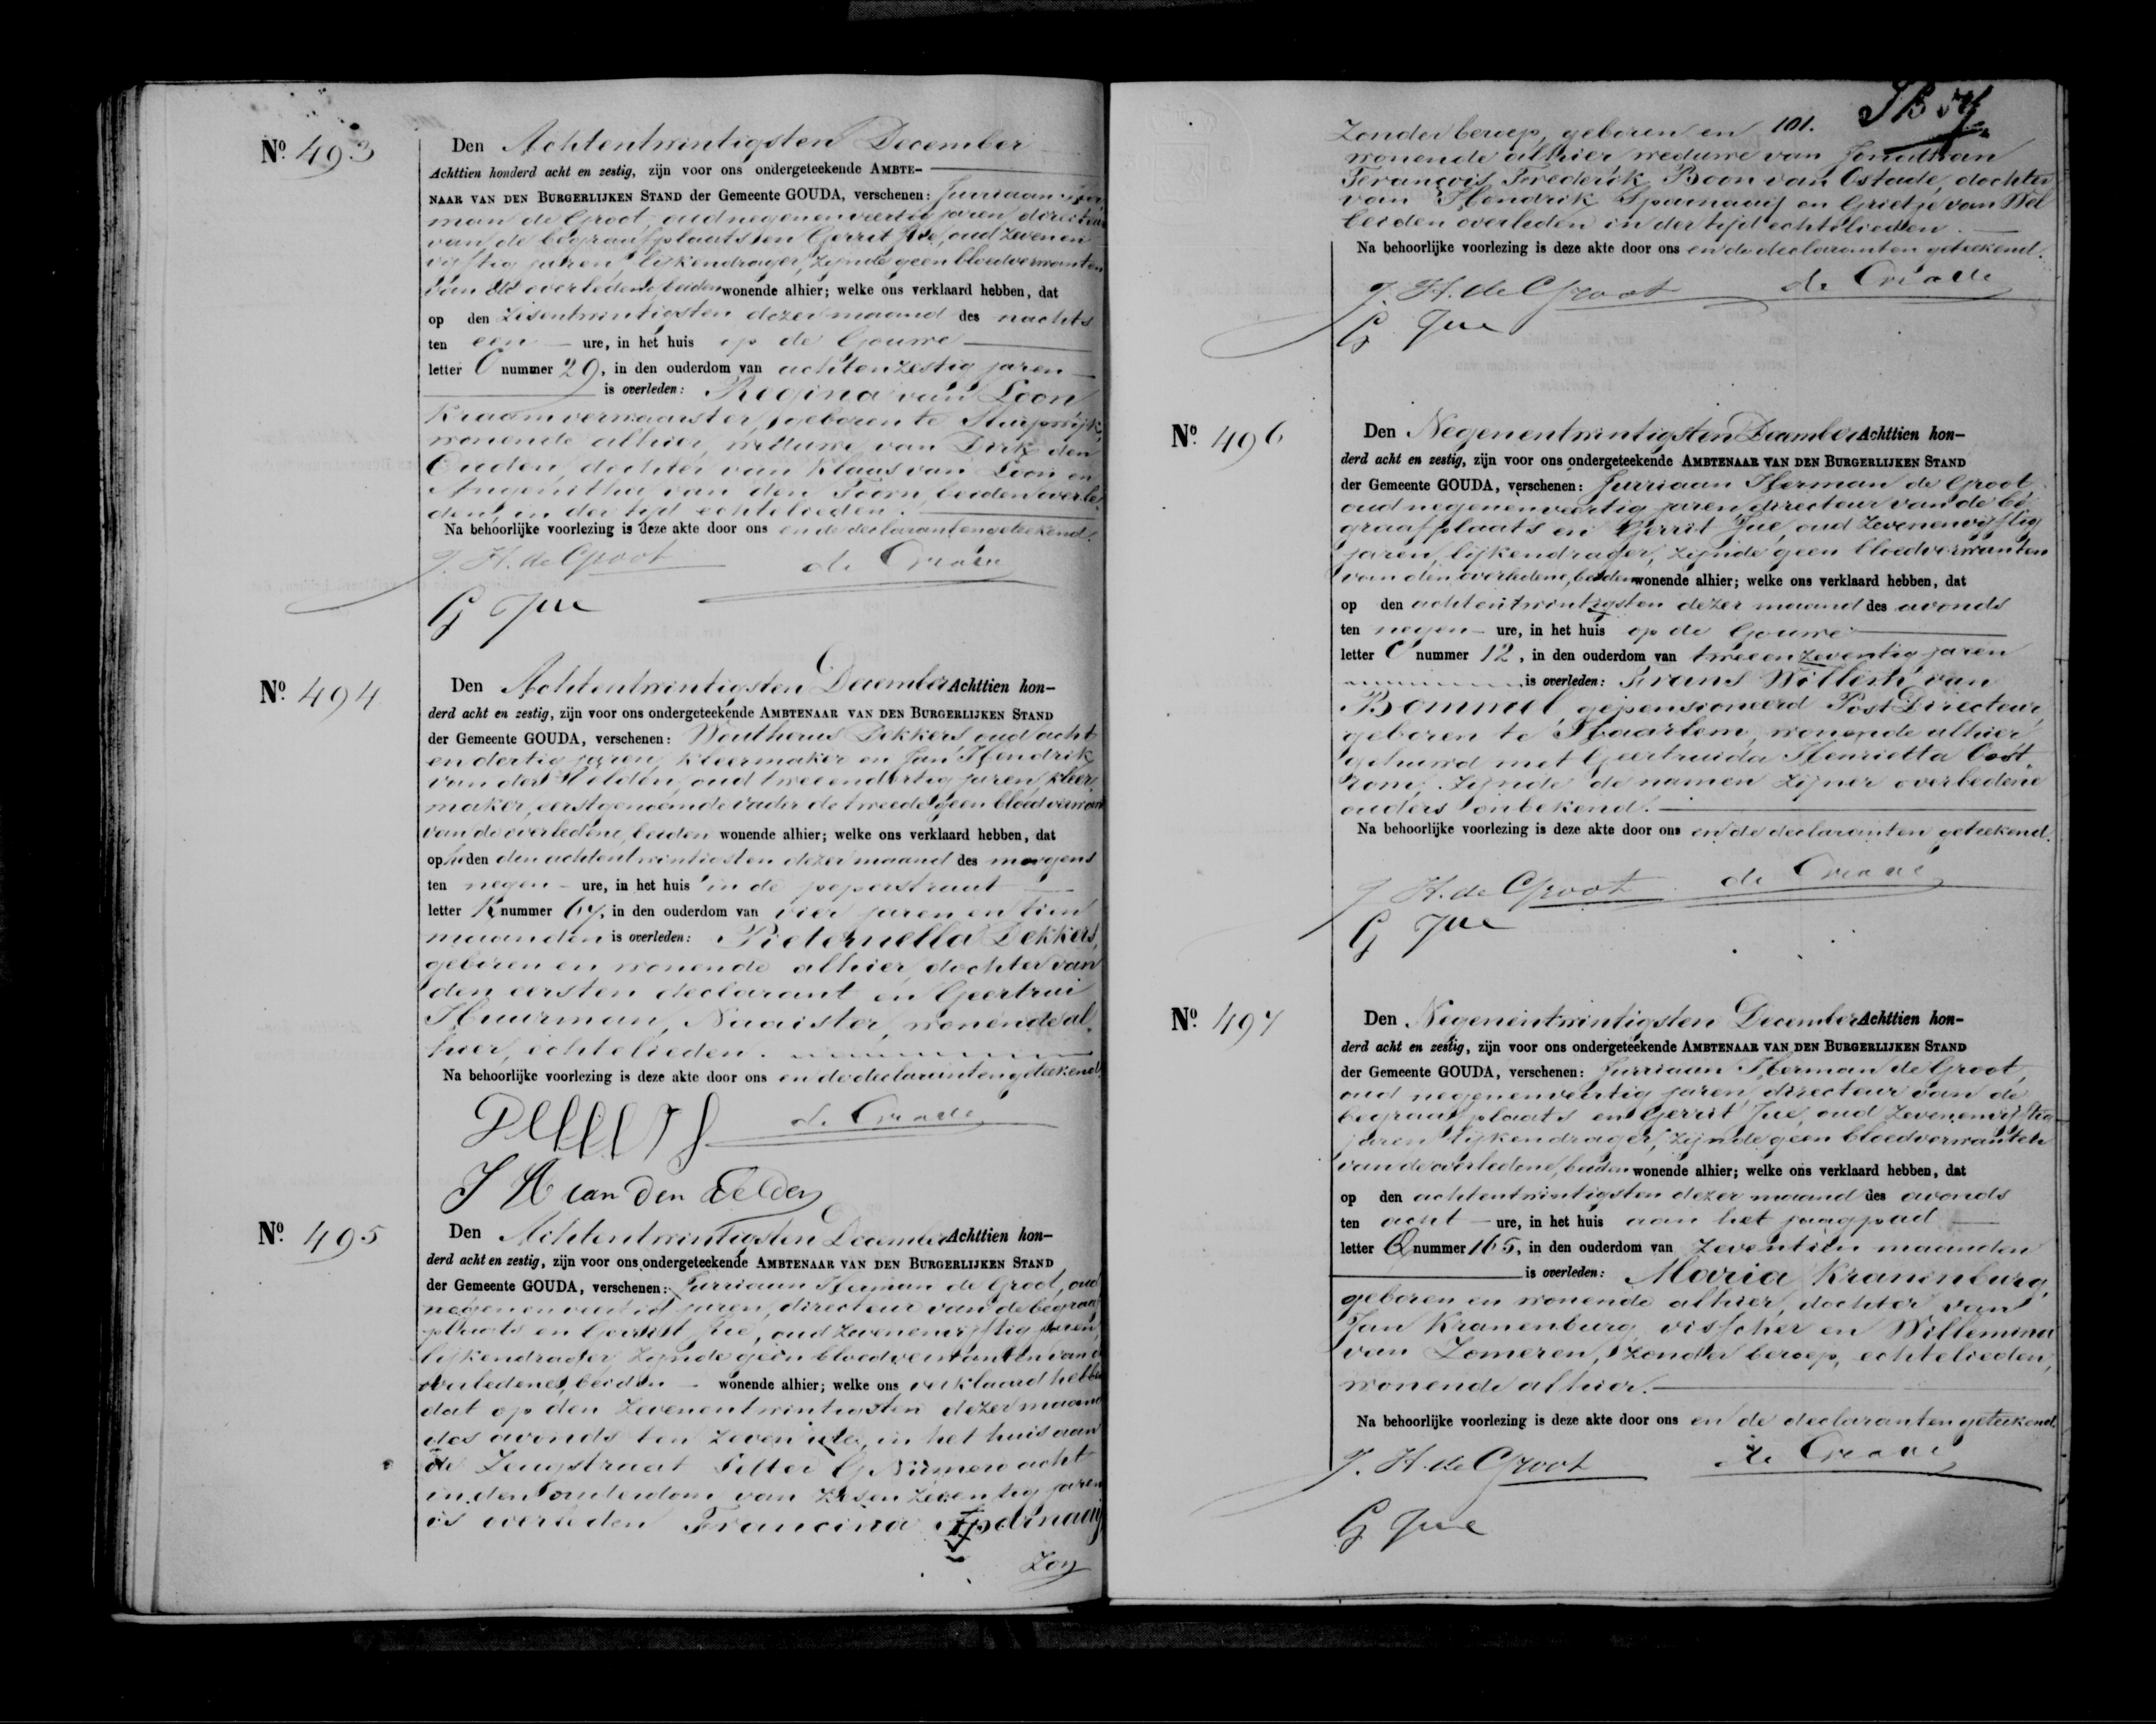 Nº 493
Den Achtentwintigsten December
Achttien honderd acht en zestig, zijn voor ons ondergeteekende AMBTE-
NAAR VAN DEN BURGERLIJKEN STAND der Gemeente GOUDA, verschenen: Jurriaan Her
man de Groot, oud negenenveertig jaren, directeur
van de begraafplaats en Gerrit Jue, oud zevenen
vijftig jaren, lijkendrager, zijnde geen bloedverwanten
van de overledene, beiden wonende alhier; welke ons verklaard hebben, dat
op den zesentwintigsten dezer maand des nachts
ten een ure, in het huis op de Gouwe
letter C nummer 29, in den ouderdom van achtenzestig jaren
is overleden: Regina van Loon
Kraamverwaarster, geboren te Sluipwijk,
wonende alhier, weduwe van Dirk den
Ouden, dochter van Klaas van Loon en
Angenitha van den Toorn, beiden overle
den, in der tijd echtelieden.
Na behoorlijke voorlezing is deze akte door ons en de declaranten geteekend.
J. H. de Groot
G Jue
Nº 494
Den Achtentwintigsten December Achttien hon-
derd acht en zestig, zijn voor ons ondergeteekende AMBTENAAR VAN DEN BURGERLIJKEN STAND
der Gemeente GOUDA, verschenen: Woutherus Dekkers oud acht
en dertig jaren, kleermaker en Jan Hendrik
van der Helden, oud tweeendertig jaren, kleer
maker, eerstgenoemde vader de tweede geen bloedverwant
van de overledene, beiden wonende alhier; welke ons verklaard hebben, dat
op heden den achtentwintigsten dezer maand des morgens
ten negen ure, in het huis in de peperstraat
letter K nummer 67, in den ouderdom van vier jaren en tien
maanden is overleden: Pieternella Dekkers,
geboren en wonende alhier, dochter van
den eersten declarant en Geertrui
Huurman, Naaister, wonende al
hier, echtelieden.
Na behoorlijke voorlezing is deze akte door ons en de declaranten geteekend.
Dekkers
J H van den Helden
Nº 495
Den Achtentwintigsten December Achttien hon-
derd acht en zestig, zijn voor ons ondergeteekende AMBTENAAR VAN DEN BURGERLIJKEN STAND
der Gemeente GOUDA, verschenen: Jurriaan Herman de Groot, oud
negenenveertig jaren, directeur van de begraaf
plaats en Gerrit Jue, oud zevenenvijftig jaren,
lijkendrager, zijnde geen bloedverwanten van de
overledene, beiden wonende alhier; welke ons verklaard hebben
dat op den zevenentwintigsten dezer maand
des avonds ten zeven ure, in het huis aan
de Zeugstraat Letter G Numero acht
in den ouderdom van zesenzeventig jaren
is overleden Francina Sparnaaij
Zon
101.
Zonder beroep, geboren en
wonende alhier weduwe van Jonathan
François Frederik Boon van Ostade, dochter
van Hendrik Sparnaaij en Grietje van Wel
beiden overleden in der tijd echtelieden.
Na behoorlijke voorlezing is deze akte door ons en de declaranten geteekend.
J. H. de Groot
G Jue
Nº 496
Den Negenentwintigsten December Achttien hon-
derd acht en zestig, zijn voor ons ondergeteekende AMBTENAAR VAN DEN BURGERLIJKEN STAND
der Gemeente GOUDA, verschenen: Jurriaan Herman de Groot,
oud negenenveertig jaren, directeur van de be
graafplaats en Gerrit Jue, oud zevenenvijftig
jaren, lijkendrager, zijnde geen bloedverwanten
van den overledene, beiden wonende alhier; welke ons verklaard hebben, dat
op den achtentwintigsten dezer maand des avonds
ten negen ure, in het huis op de Gouwe
letter C nummer 12, in den ouderdom van tweeenzeventig jaren
is overleden: Frans Willem van
Bommel, gepensioneerd Post Directeur,
geboren te Haarlem, wonende alhier
gehuwd met Geertruida Henrietta Oost
rom, zijnde de namen zijner overledene
ouders onbekend.
Na behoorlijke voorlezing is deze akte door ons en de declaranten geteekend.
J H. de Groot
G Jue
Nº 497
Den Negenentwintigsten December Achttien hon-
derd acht en zestig, zijn voor ons ondergeteekende AMBTENAAR VAN DEN BURGERLIJKEN STAND
der Gemeente GOUDA, verschenen: Jurriaan Herman de Groot,
oud negenenveertig jaren, directeur van de
begraafplaats en Gerrit Jue, oud zevenenvijftig
jaren lijkendrager, zijnde geen bloedverwanten
van de overledene, beiden wonende alhier; welke ons verklaard hebben, dat
op den achtentwintigsten dezer maand des avonds
ten acht ure, in het huis aan het jaagpad
letter Q nummer 165, in den ouderdom van zeventien maanden
is overleden: Maria Kranenburg,
geboren en wonende alhier, dochter van
Jan Kranenburg, visscher en Willemina
van Zomeren, zonder beroep, echtelieden,
wonende alhier.
Na behoorlijke voorlezing is deze akte door ons en de declaranten geteekend.
J. H. de Groot
G Jue